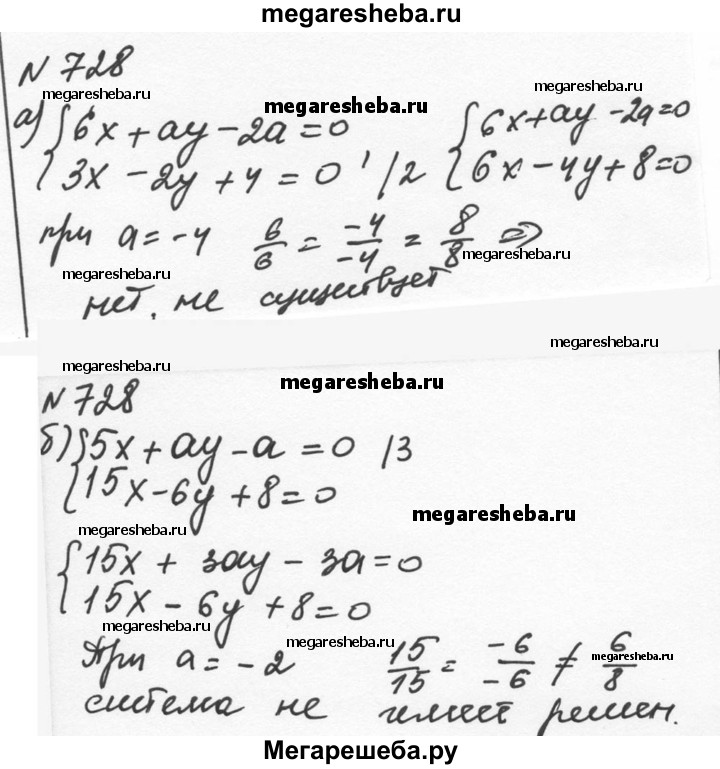 megaresheba.ru
N 728
megaresheba.ru
а) { 6x + ay - 2a = 0
3x - 2y + 4 = 0 ' /2
megaresheba.ru
megaresheba.ru
{ 6x + ay - 2a = 0
6x - 4y + 8 = 0
при a = -4 6/6 = -4/-4 = 8/8 ⇒
megaresheba.ru
megaresheba.ru
нет, не существует
megaresheba.ru
megaresheba.ru
megaresheba.ru
N 728
б) { 5x + ay - a = 0 /3
15x - 6y + 8 = 0
megaresheba.ru
megaresheba.ru
{ 15x + 3ay - 3a = 0
15x - 6y + 8 = 0
megaresheba.ru
megaresheba.ru
megaresheba.ru
При a = -2 15/15 = -6/-6 ≠ 6/8
система не имеет решен.
Мегарешеба.ру